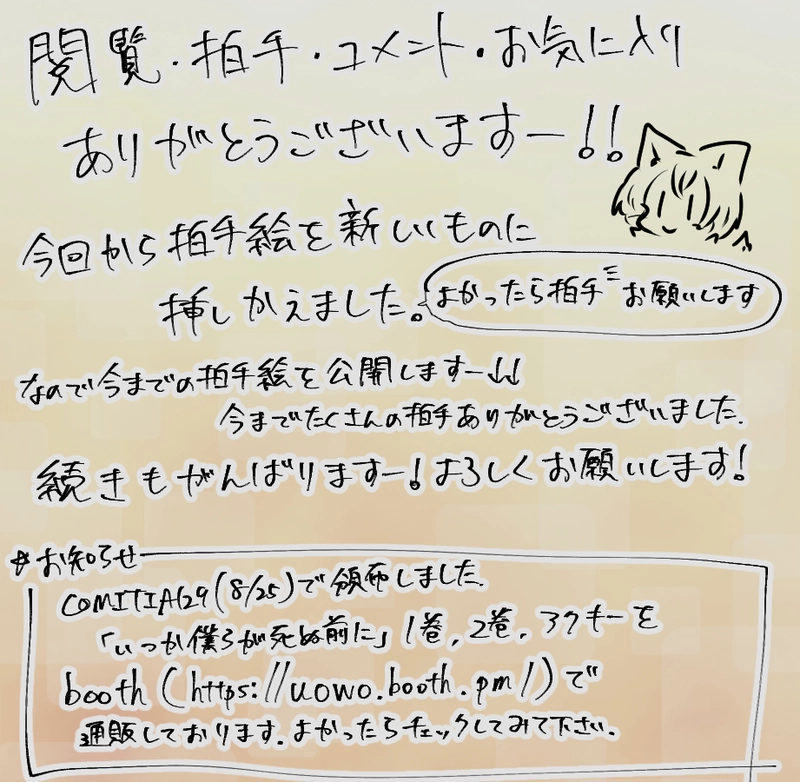 閲覧・拍手・コメント・お気に入り
ありがとうございますー!!
今回から拍手絵を新しいものに
挿しかえました。
よかったら拍手お願いします
なので今までの拍手絵を公開しますー↓↓
今までたくさんの拍手ありがとうございました.
続きもがんばりますー!よろしくお願いします!
お知らせ
COMITIA129(8/25)で頒布しました.
「いつか僕らが死ぬ前に」1巻,2巻,アクキーを
booth(https://uowo.booth.pm/)で
通販しております.よかったらチェックしてみて下さい.